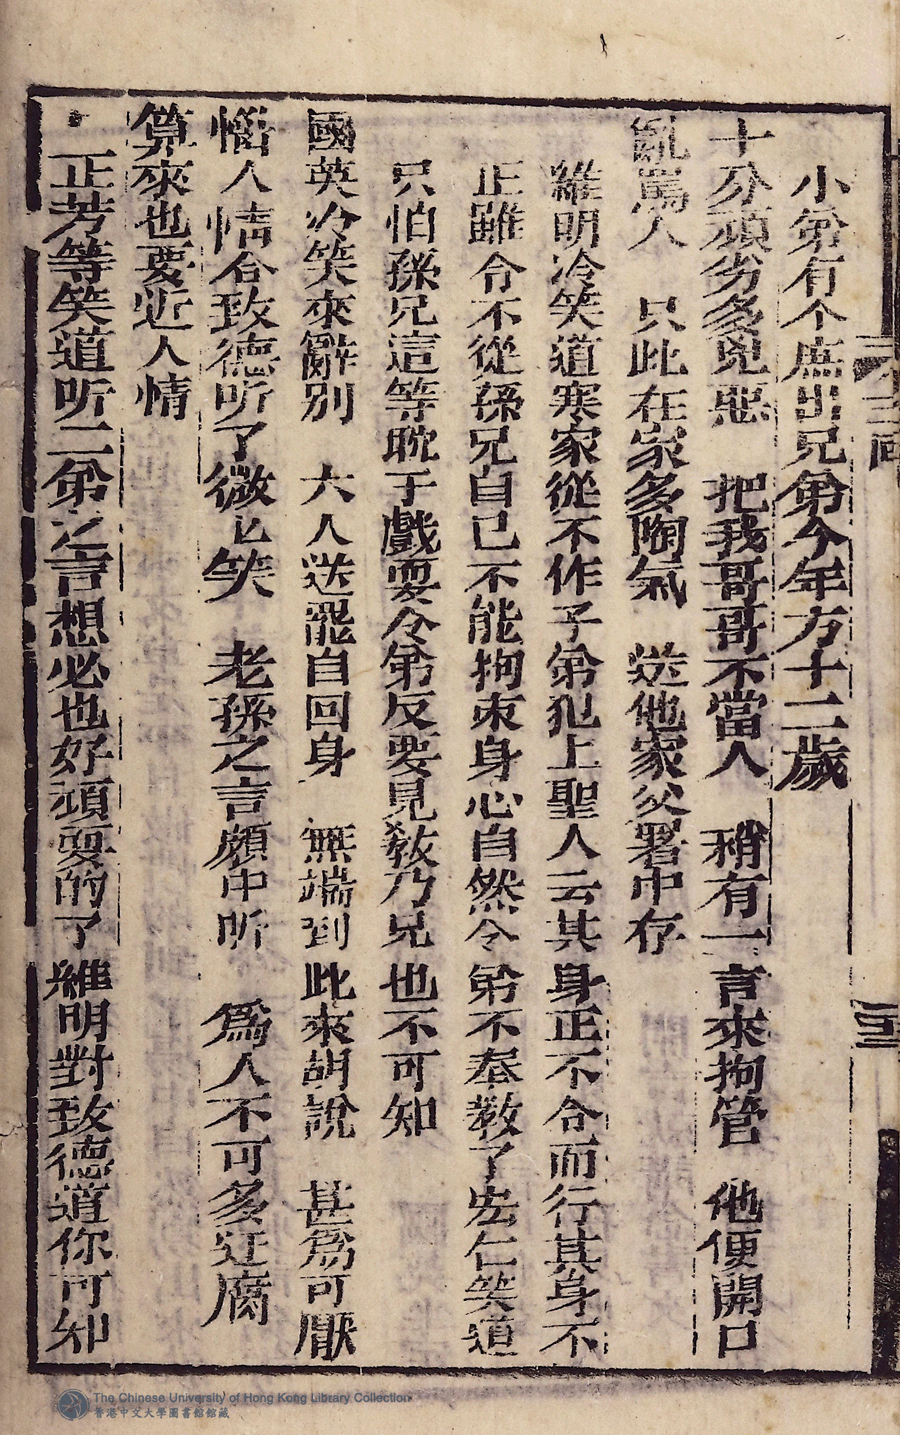 小弟有个庶出兄弟今年方十二歲
十分頑劣多兇惡 把我哥哥不當人 稍有一言來拘管 他便開口
亂罵人 只此在家多陶氣 送他家父署中存
維明冷笑道寒家從不作子弟犯上聖人云其身正不令而行其身不
正雖令不從孫兄自己不能拘束身心自然令弟不奉教了宏仁笑道
只怕孫兄這等耽于戲耍令弟反要見教乃兄也不可知
國英冷笑來辭別 大人送罷自回身 無端到此來胡說 甚為可厭
惱人情合致德听了微匕笑 老孫之言頗中听 為人不可多迂腐
算來也要近人情
正芳等笑道听二弟之言想必也好頑耍的了維明對致德道你可知
二三
The Chinese University of Hong Kong Library Collection
香港中文大學圖書館館藏